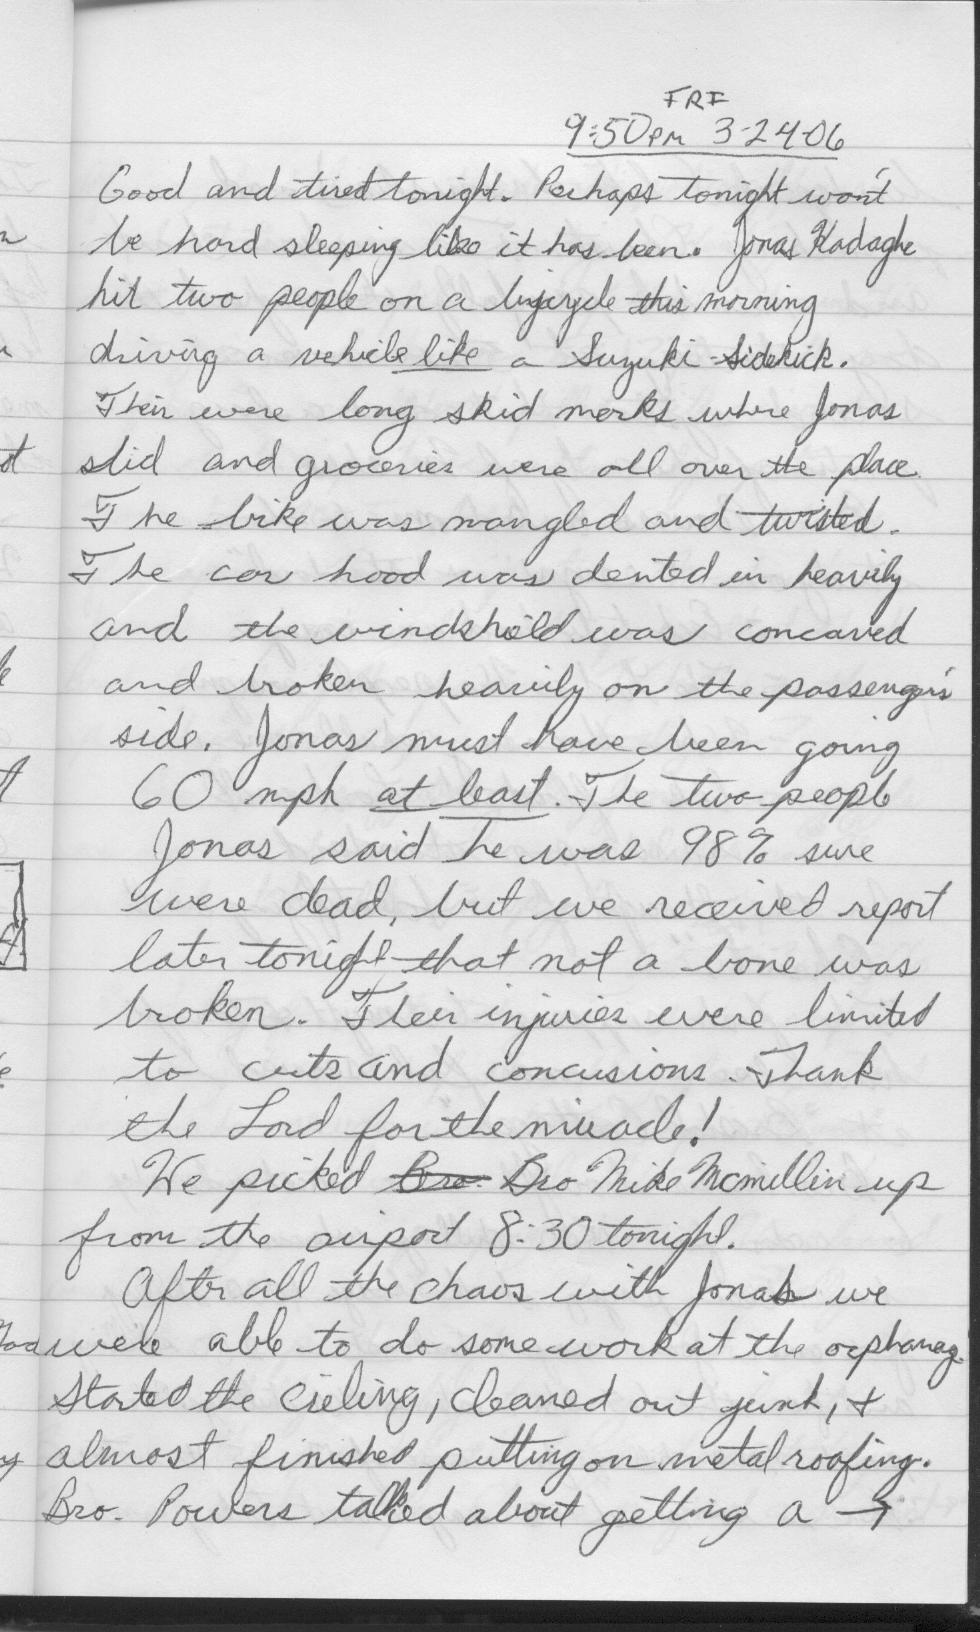 FRI
9:50pm 3-24-06
Good and tired tonight. Perhaps tonight won't
be hard sleeping like it has been. Jonas Kadaghe
hit two people on a bycycle this morning
driving a vehicle like a Suzuki Sidekick.
Their were long skid marks where Jonas
slid and groceries were all over the place.
The bike was mangled and twisted.
The car hood was dented in heavily
and the windshield was concaved
and broken heavily on the passenger's
side. Jonas must have been going
60 mph at least. The two people
Jonas said he was 98% sure
were dead, but we received report
later tonight that not a bone was
broken. Their injuries were limited
to cuts and concusions. Thank
the Lord for the miracle!
We picked Bro. Bro Mike Mcmillin up
from the airport 8:30 tonight.
After all the chaos with Jonas we
were able to do some work at the orphanag.
Started the cieling, cleaned out junk, &
almost finished putting on metal roofing.
Bro. Powers talked about getting a →